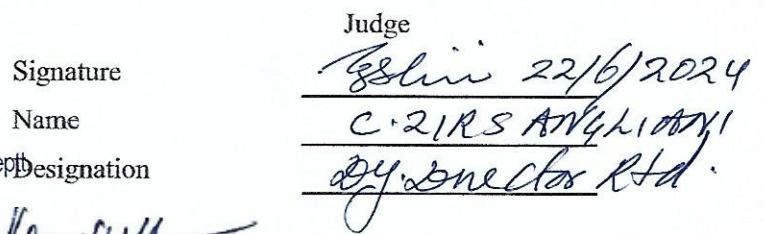 Judge
Signature 22/6/2024
Name C.ZIRSANGLIANI
Designation Dy. Director Rtd.